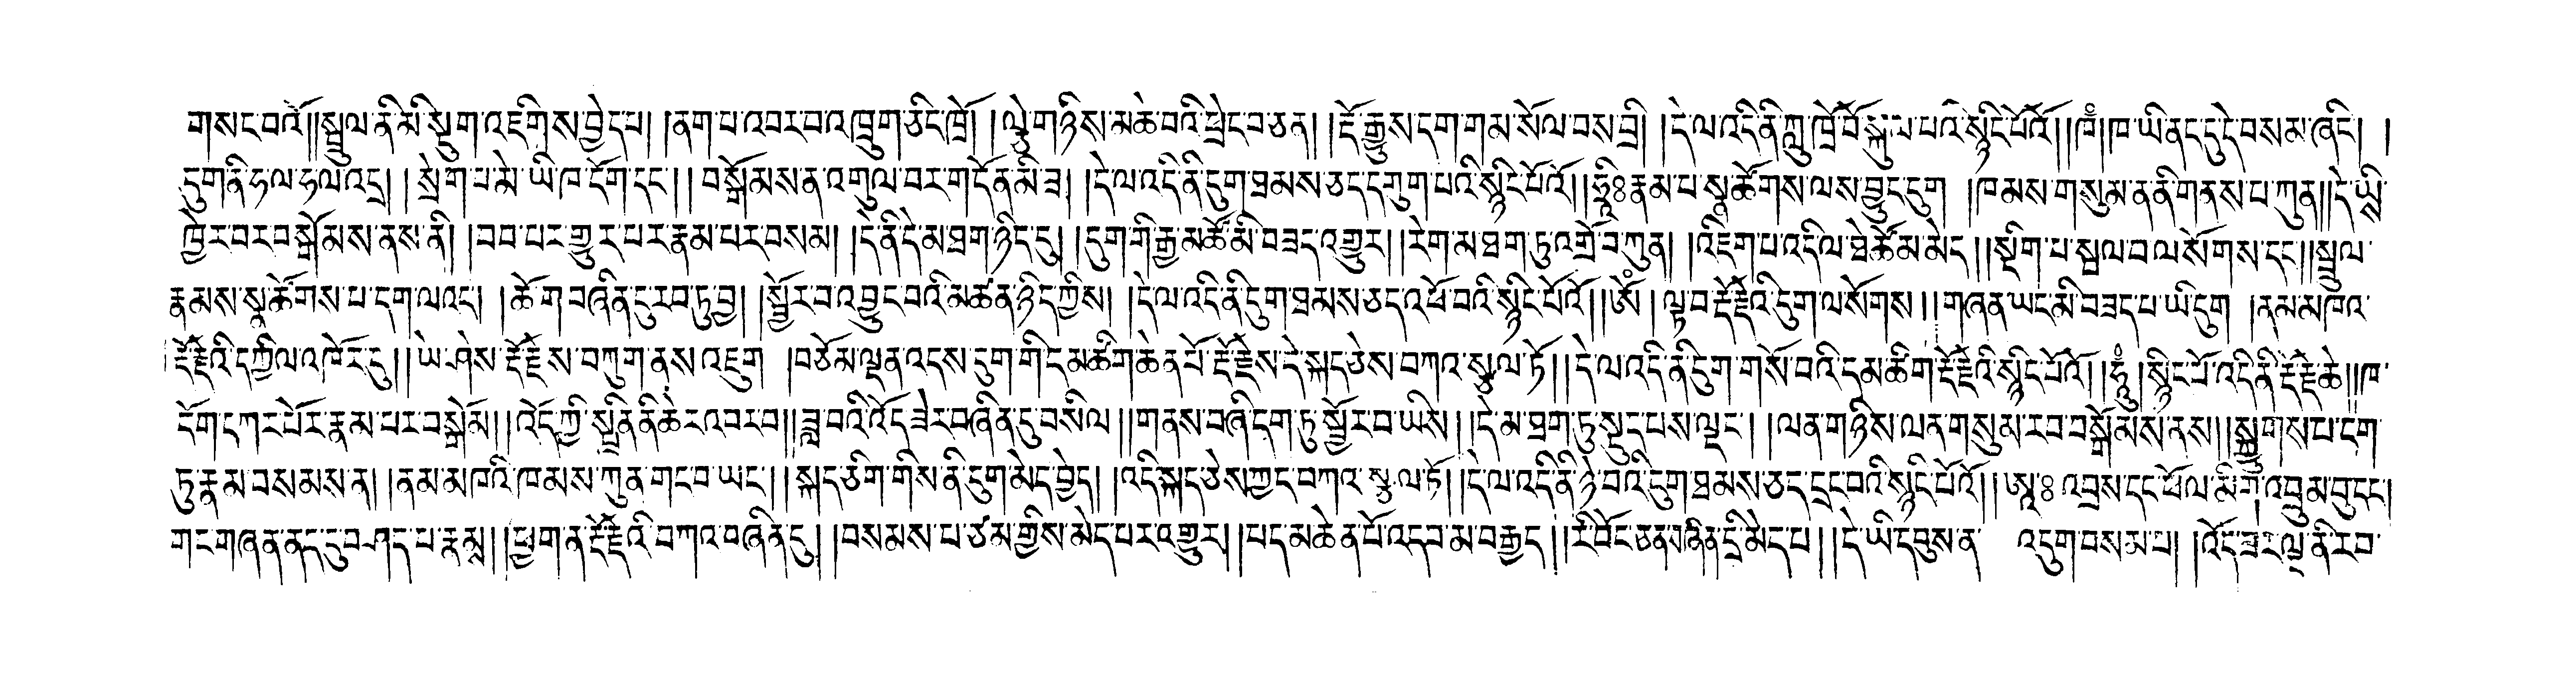 གསང་བའོ།།སྦྲུལ་ནི་མི་སྡུག་འཇིགས་བྱེད་པ། །ནག་པ་འབར་བ་འཁྲུག་ཅིང་ཁྲོ། །ལྕེ་གཉིས་མཆེ་བའི་ཕྲེང་བ་ཅན། །རྡོ་རྒྱུས་དག་གམ་སོལ་བས་བྲི། །དེ་ལ་འདི་ནི་ཀླུ་ཁྲོ་བོ་སྐུལ་པའི་སྙིང་པོའོ།།ཁཾ།ཁ་ཡི་ནང་དུ་དེ་བསམ་ཞིང། །
དུག་ནི་ཧ་ལ་ཧ་ལ་འདྲ། །སྲེག་པ་མེ་ཡི་ཁ་དོག་དང་། །བསྒོམས་ན་འགུལ་བར་གདོན་མི་ཟ། །དེ་ལ་འདི་ནི་དུག་ཐམས་ཅད་དགུག་པའི་སྙིང་པོའོ།།ཧྲཱིཿརྣམ་པ་སྣ་ཚོགས་ལས་བྱུང་དུག །ཁམས་གསུམ་ན་ནི་གནས་པ་ཀུན།།དེ་ཡི་
ཁྱེར་བར་བསྒོམས་ནས་ནི། །བབ་པར་གྱུར་པར་རྣམ་པར་བསམ། །དེ་ནི་དེ་མ་ཐག་ཉིད་དུ། །དུག་གི་རྒྱ་མཚོ་མི་བཟད་འགྱུར། །རེག་མ་ཐག་ཏུ་འགྲོ་བ་ཀུན། །འཇིག་པ་འདི་ལ་ཐེ་ཚོམ་མེད། །སྡིག་པ་སྦལ་བ་ལ་སོགས་དང་།།སྦྲུལ་
རྣམས་སྣ་ཚོགས་པ་དག་ལའང། །ཆོ་ག་བཞིན་དུ་རབ་ཏུ་བྱ། །སྦྱོར་བ་འབྱུང་བའི་མཚན་ཉིད་ཀྱིས། །དེ་ལ་འདི་ནི་དུག་ཐམས་ཅད་འཕོ་བའི་སྙིང་པོའོ།།ཨོཾ། ལྟ་བ་རྡོ་རྗེའི་དུག་ལ་སོགས། །གཞན་ཡང་མི་བཟད་པ་ཡི་དུག །ནམ་མཁའ་
རྡོ་རྗེའི་དཀྱིལ་འཁོར་དུ། །ཡེ་ཤེས་རྡོ་རྗེས་བཀུག་ནས་འཇུག །བཅོམ་ལྡན་འདས་དུག་གི་དམ་ཚིག་ཆེན་པོ་རྡོ་རྗེས་དེ་སྐད་ཅེས་བཀའ་སྩལ་ཏོ། །དེ་ལ་འདི་ནི་དུག་གསོ་བའི་དམ་ཚིག་རྡོ་རྗེའི་སྙིང་པོའོ། །ཧཱུྃ།སྙིང་པོ་འདི་ནི་རྡོ་རྗེ་ཆེ།།ཁ་
དོག་དཀར་པོར་རྣམ་པར་བསྒོམ། །འོད་ཀྱི་སྤྲིན་ནི་ཆེར་འབར་བ།།ཟླ་བའི་འོད་ཟེར་བཞིན་དུ་བསིལ། །གནས་བཞི་དག་ཏུ་སྦྱོར་བ་ཡིས། །དེ་མ་ཐག་ཏུ་སྡུད་པས་ལྡང་། །ལན་གཉིས་ལན་གསུམ་རབ་བསྒོམས་ནས། །སྐྱུགས་པ་དག་
ཏུ་རྣམ་བསམས་ན། །ནམ་མཁའི་ཁམས་ཀུན་གང་བ་ཡང་། །སྐད་ཅིག་གིས་ནི་དུག་མེད་བྱེད། །འདི་སྐད་ཅེས་ཀྱང་བཀའ་སྩལ་ཏོ། །དེ་ལ་འདི་ནི་ཉེ་བའི་དུག་ཐམས་ཅད་དྲང་བའི་སྙིང་པོའོ། །ཨཱཿའབྲས་དང་ཕོལ་མིག་འབྲུམ་བུ་དང་།
གང་གཞན་ནད་དུ་བཤད་པ་རྣམས། །ཕྱག་ན་རྡོ་རྗེའི་བཀའ་བཞིན་དུ། །བསམས་པ་ཙམ་གྱིས་མེད་པར་འགྱུར། །པད་མ་ཆེན་པོ་འདབ་མ་བརྒྱད། །རི་བོང་ཅན་བཞིན་དྲི་མེད་པ། །དེ་ཡི་དབུས་ན་ འདུག་བསམ་པ། །འོད་ཟེར་ལྔ་ནི་རབ་